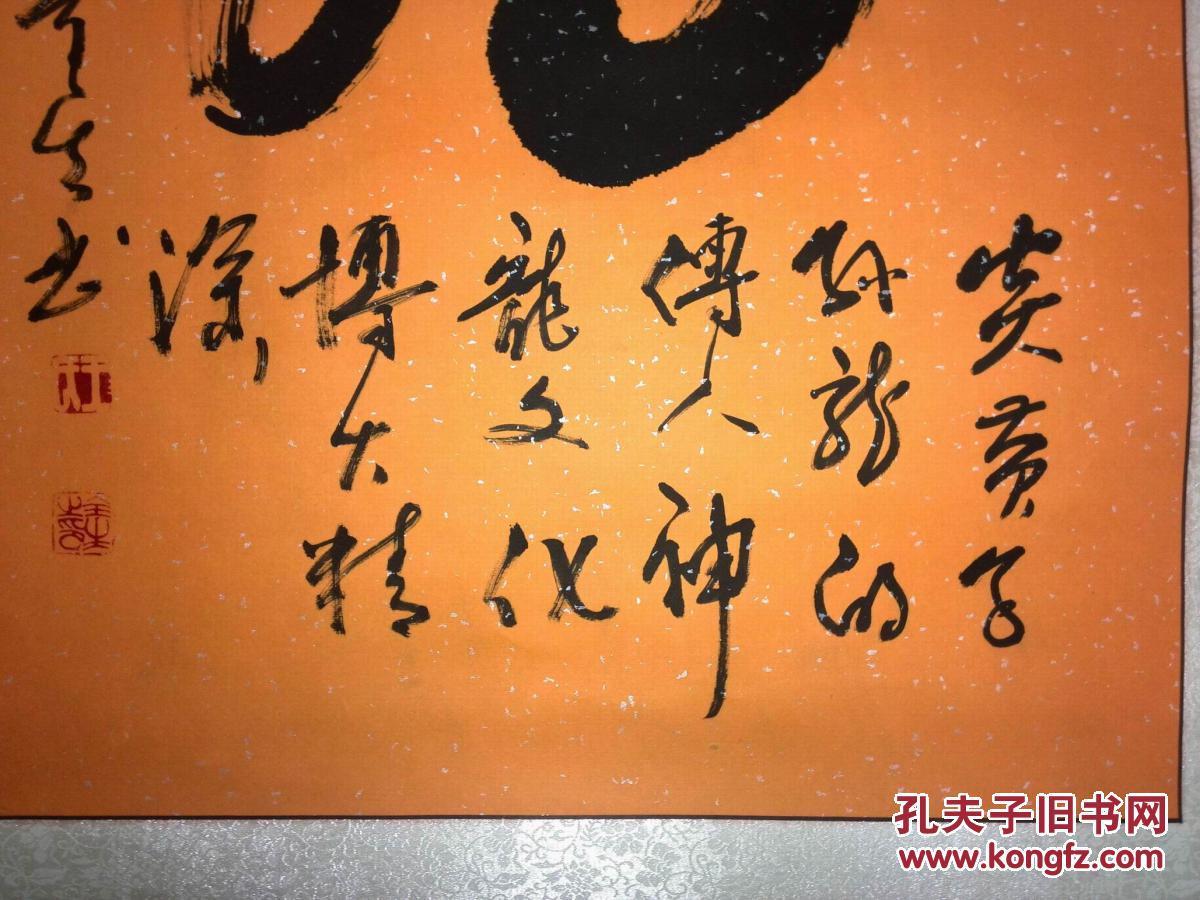 炎黄子
孙龙的
傳人神
龍文化
博大精
深
书
孔夫子旧书网
www.kongfz.com